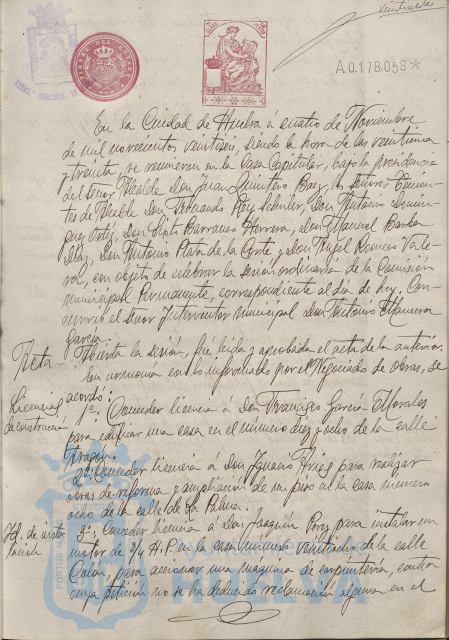 Veintiseis
A.0.178.058*
En la Ciudad de Huelva á cuatro de Noviembre
de mil novecientos veintiseis, siendo la hora de las veintiuna
y treinta, se reunieron en la Casa Capitular, bajo la presidencia
del Señor Alcalde Don Juan Quintero Baez, los Señores Tenien-
tes de Alcalde Don Fernando Rey Don Antonio Domin-
guez Ortiz, Don Barranco Herrera, Don Manuel Barba
Diaz, Don Antonio Plata de la Corte y Don Angel Romero
con objeto de celebrar la sesion ordinaria de la Comisión
Municipal Permanente, correspondiente al dia de hoy. Con-
currió el Señor Interventor Municipal Don Antonio
Garcia.
Acta- Abierta la sesión, fué leida y aprobada el acta de la anterior.
En armonia con lo informado por el Negociado de obras, se
acordó:
Licencias 1º: Conceder licencia á Don Francisco Garcia Morales
para edificar una casa en el número diez y ocho de la calle
Aragon.
2º: Conceder licencia á Don Ignacio Arias para realizar
obras de reforma y ampliación de un piso en la casa número
ocho de la calle de La Palma.
3º: Conceder licencia á Don Joaquin Perez para instalar un
motor de H.P. en la casa número veintidos de la calle
Colon, para accionar una maquina de carpinteria, contra
cuya petición no se ha deducido reclamación alguna en el
HUELVA